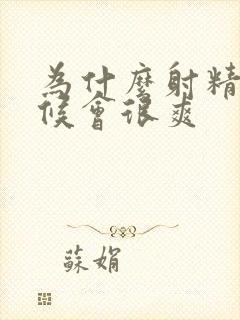 為什麼射精
候會很爽
蘇娟